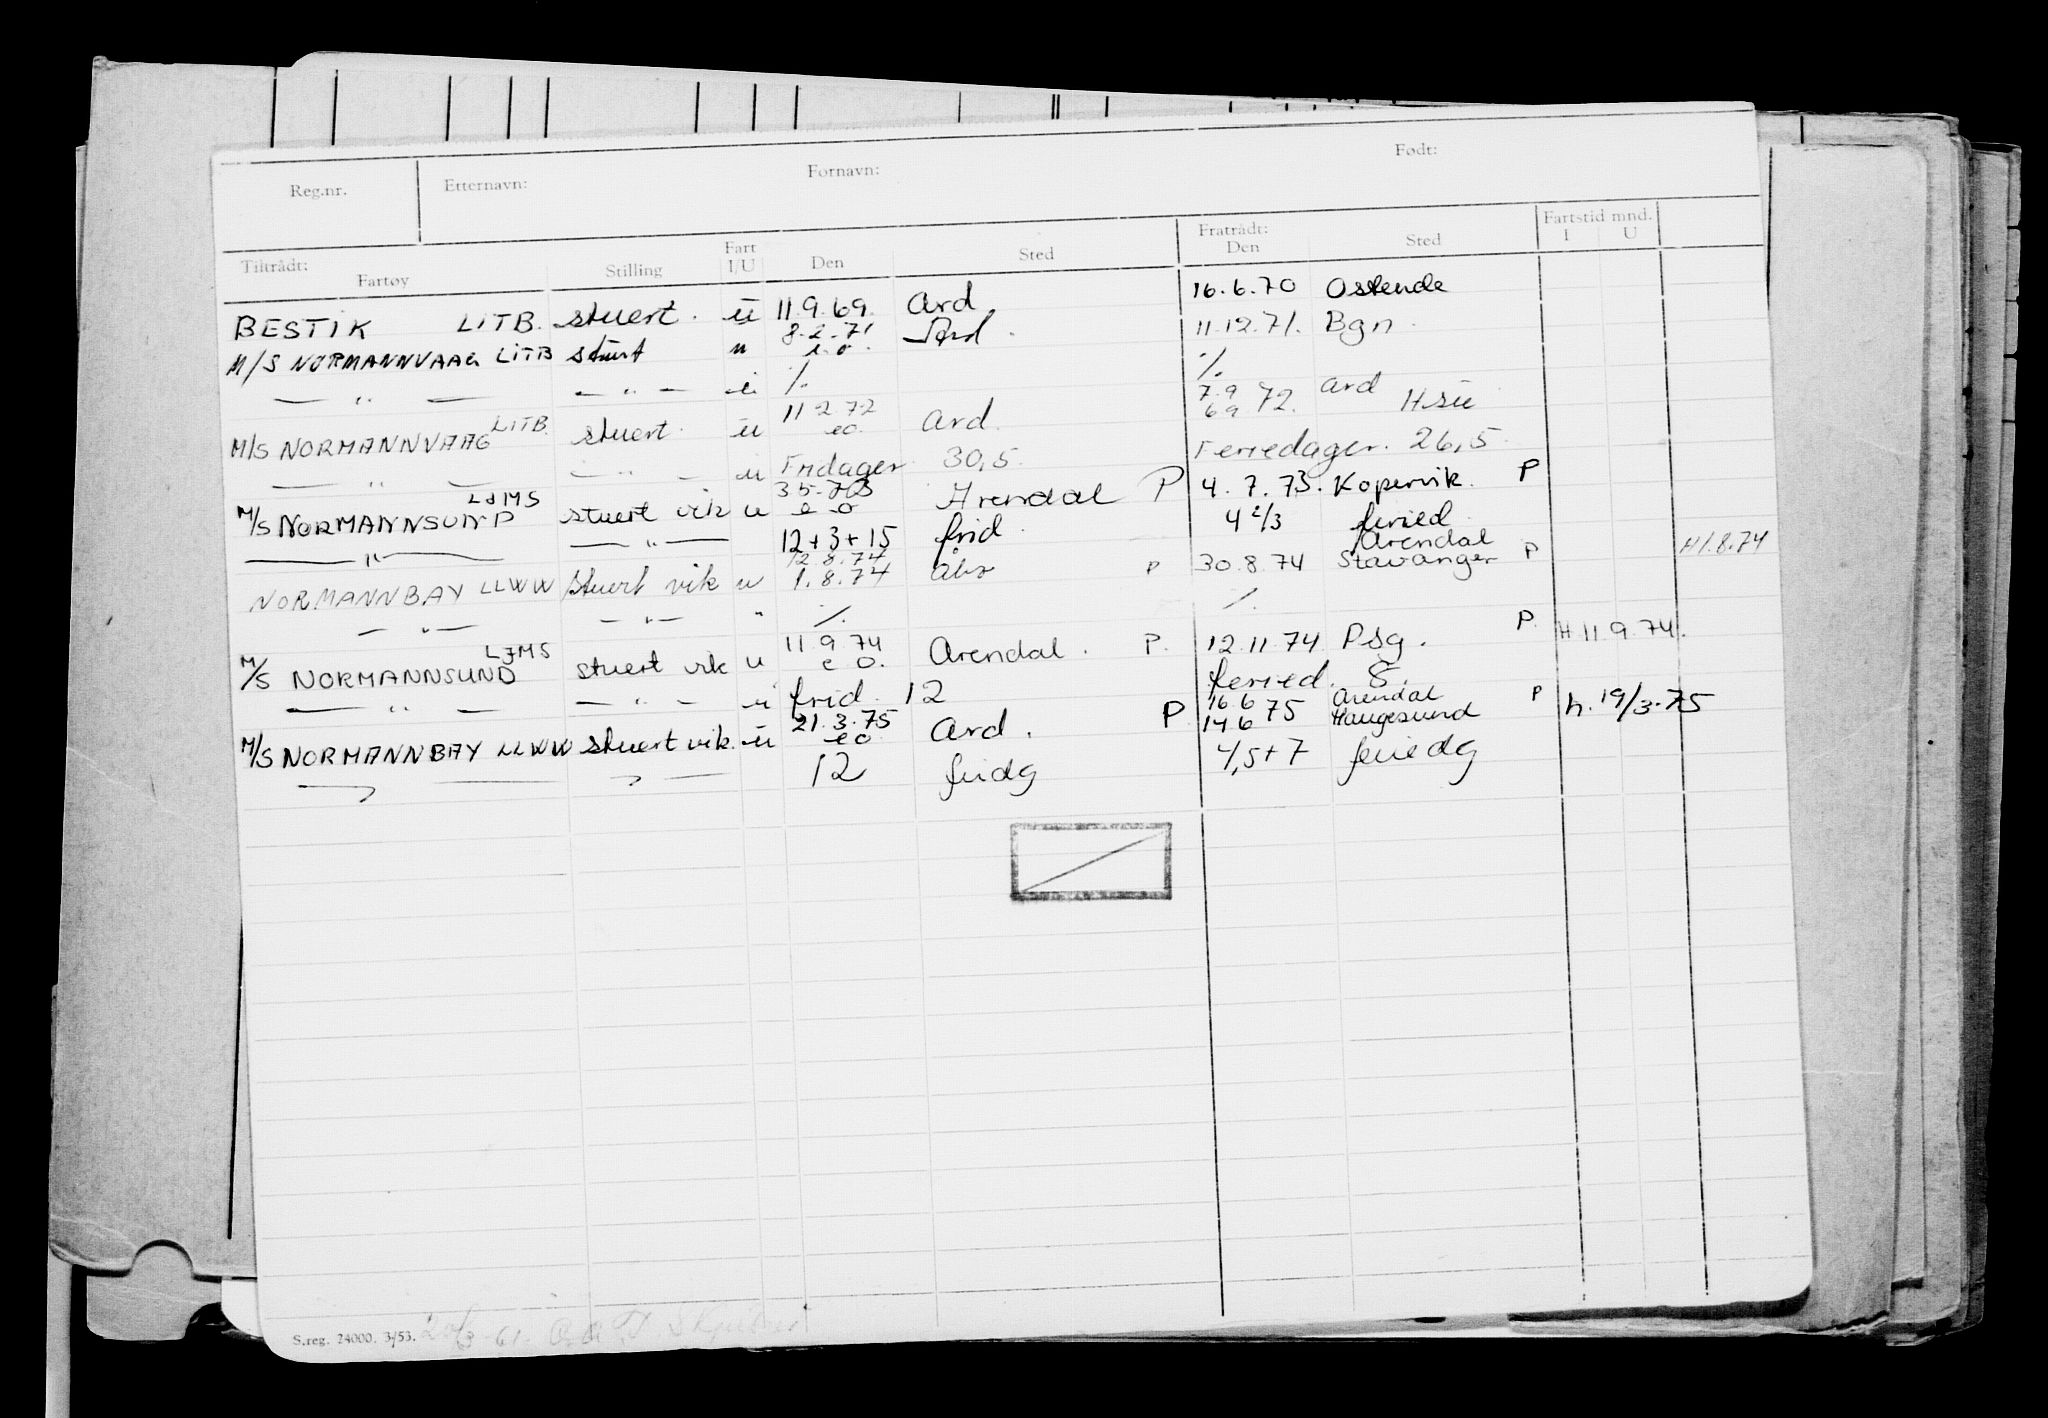 Reg.nr. Etternavn: Fornavn: Født:
Tiltrådt: Fartøy Stilling Fart I/U Den Sted Fratrådt: Den Sted Fartstid mnd. I U
BESTIK LITB. stuert. u 11.9.69. Ard 16.6.70 Ostende
M/S NORMANNVAAG LITB stuert u 8.2.71 e.o. Ard. 11.12.71. Bgn.
— " — — " — u ./. ./.
M/S NORMANNVAAG LITB. stuert. u 11.2.72 eo. Ard. 7.9 69 72. Ard Hsu
— " — — " — u Fridager 30,5. Feriedager. 26,5.
M/S NORMANNSUND LJMS stuert vik u 3.5.73 e o Arendal P 4.7.73. Kopervik. P
— " — — " — 12+3+15 frid. 4 2/3 feried.
NORMANNBAY LLWW stuert vik u 12.8.74 1.8.74 P 30.8.74 Arendal Stavanger P H 1.8.74
— " — — " — " ./. ./.
M/S NORMANNSUND LJMS stuert vik u 11.9.74 e o. Arendal. P. 12.11.74 Psg. P. H 11.9.74.
— " — — " — u frid. 12 feried. 8.
M/S NORMANNBAY LLWW stuert vik. u 21.3.75 eo Ard. P 16.6 14.6 75 Arendal Haugesund P h. 19/3-75
— " — — " — 12 fridg 4,5+7 feriedg
S.reg. 24000. 3/53.